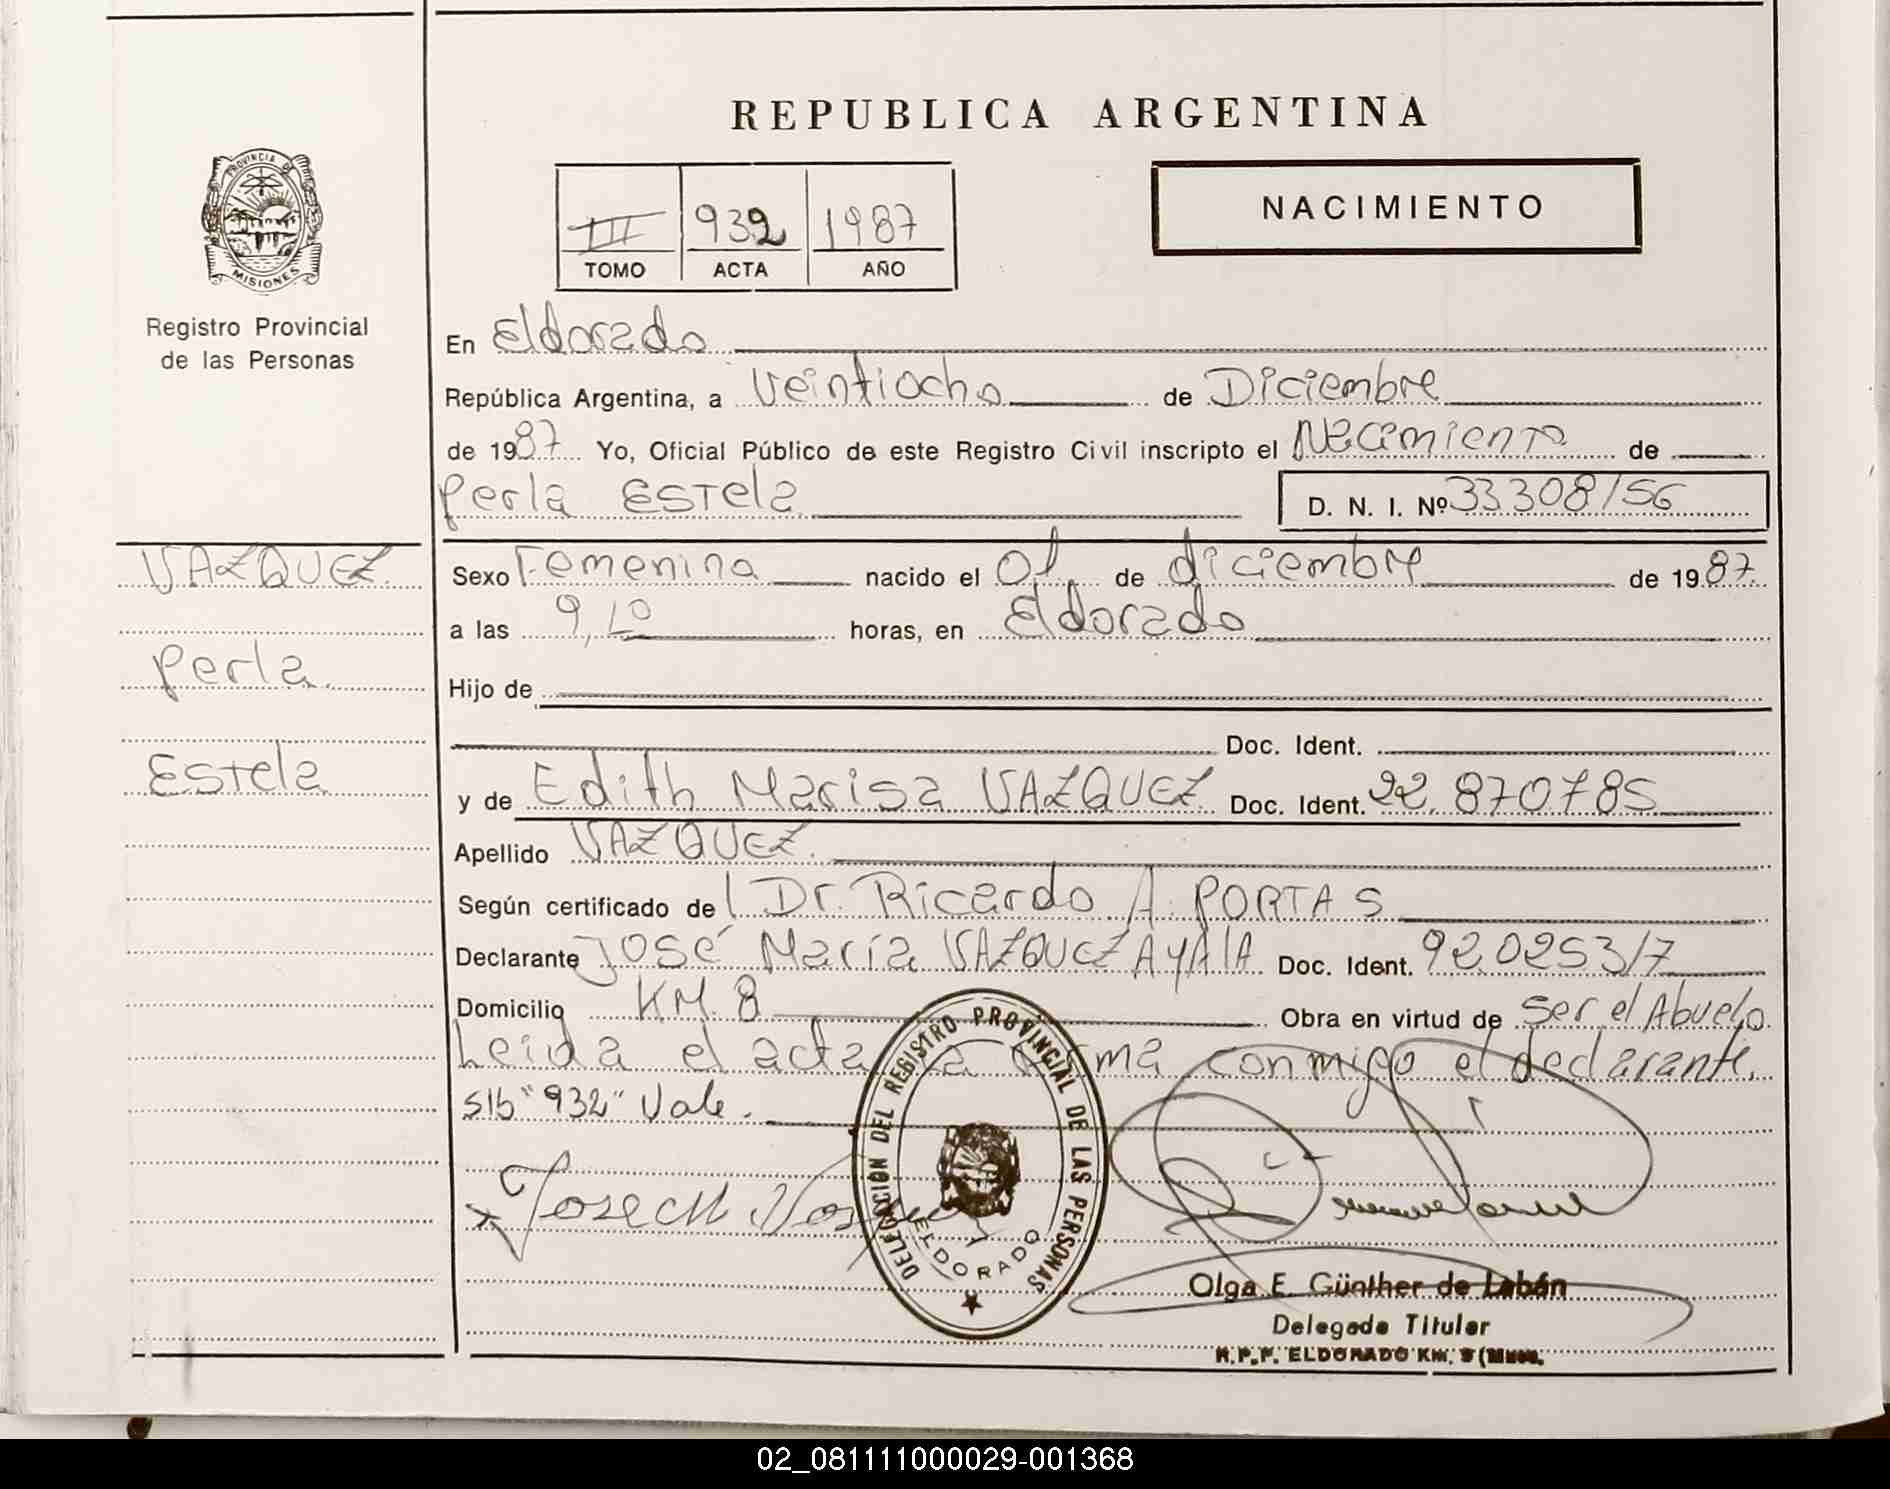 REPUBLICA ARGENTINA
PROVINCIA DE
MISIONES
Registro Provincial
de las Personas
III 932 1987
TOMO ACTA AÑO
NACIMIENTO
En Eldorado
República Argentina, a Veintiocho de Diciembre
de 1987 Yo, Oficial Público de este Registro Civil inscripto el Nacimiento de
Perla Estela D. N. I. Nº 33308156
VAZQUEZ
Perla
Estela
Sexo Femenina nacido el 01 de diciembre de 1987
a las 9,10 horas, en Eldorado
Hijo de
Doc. Ident.
y de Edith Marisa VAZQUEZ Doc. Ident. 22.870785
Apellido VAZQUEZ
Según certificado del Dr. Ricardo A. PORTAS
Declarante José María VAZQUEZ AYALA Doc. Ident. 92.0253/7
Domicilio KM. 8 Obra en virtud de Ser el Abuelo
Leida el acta la firma conmigo el declarante.
S/b "932" Vale.
Jose M Vasquez
DELEGACION DEL REGISTRO PROVINCIAL DE LAS PERSONAS
ELDORADO
Olga E. Günther de Labán
Delegada Titular
R.P.P. ELDORADO KM. 9 (Mnes.
02_081111000029-001368